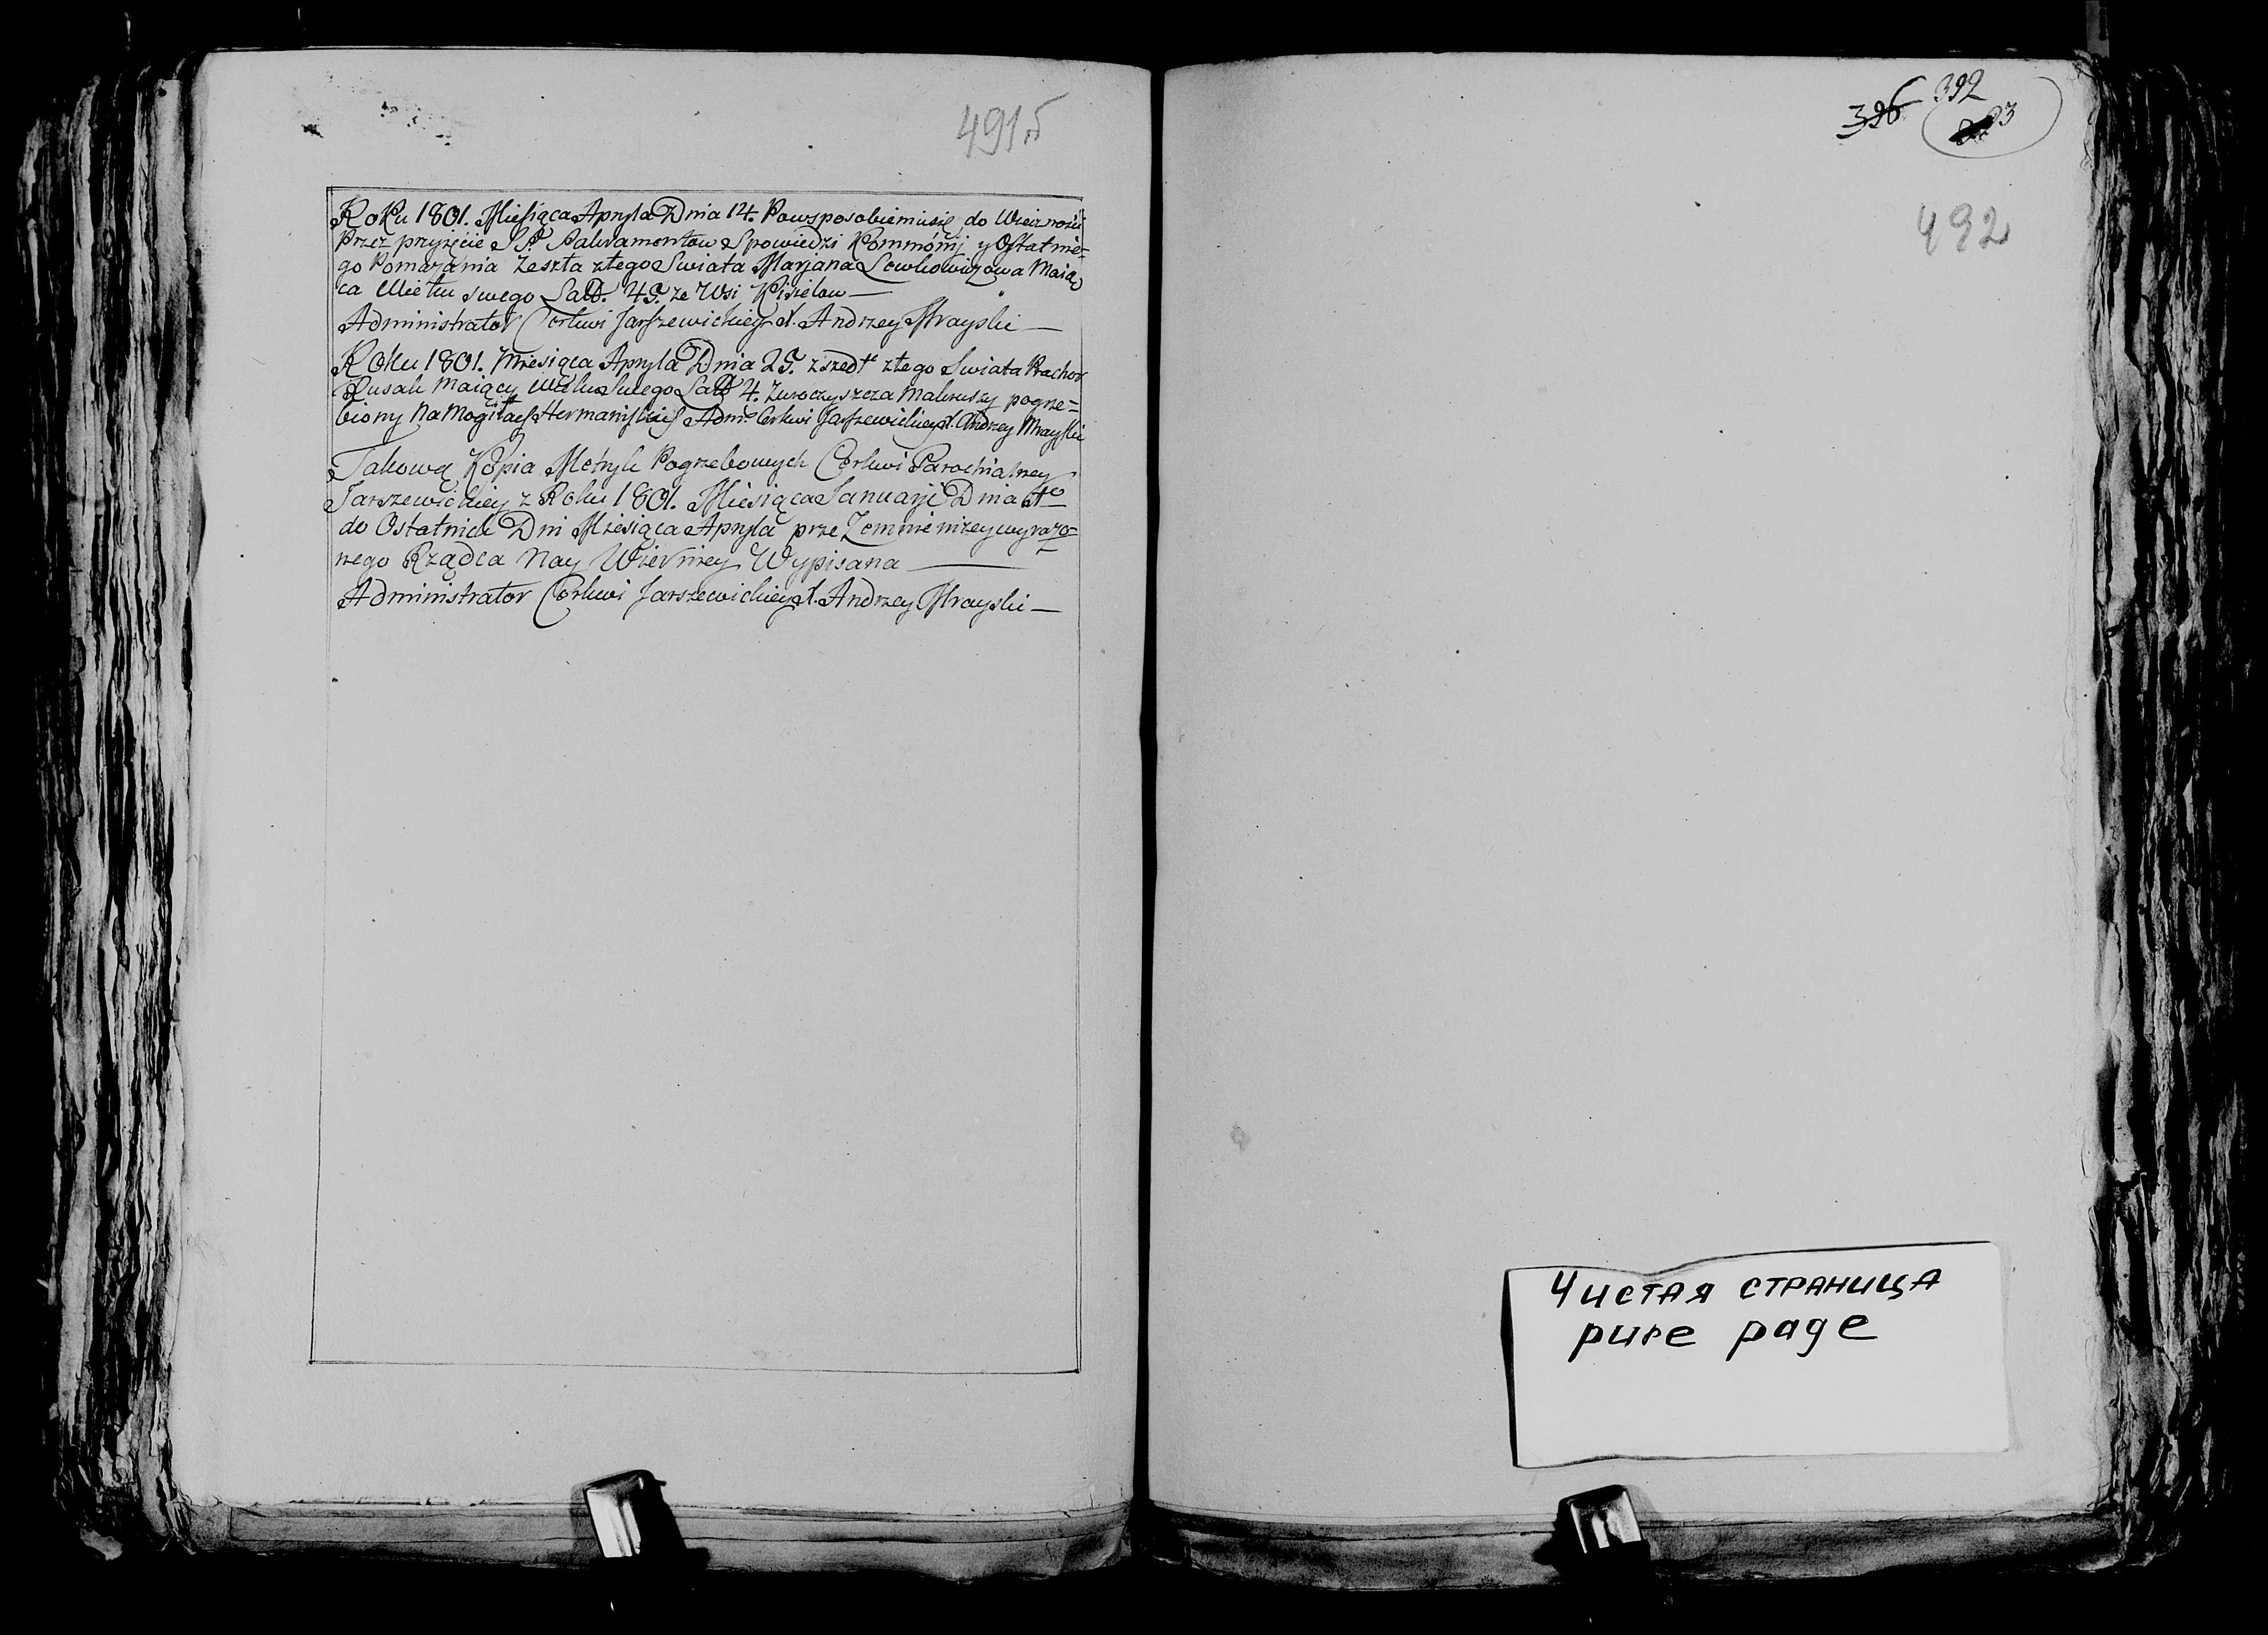 491б
Roku 1801. Miesiąca Apryla Dnia 14. Powsposobieniusię do Wiecznośći
Przez przyięcie SS. Sakramentow Spowiedzi Kommónij y Ostatnie=
go Pomazánia Zeszła ztego Swiata Marjana Lowkowiczowa Maią
ca Wieku swego Latt. 45. ze Wsi Kisielow
Administrator Cerkwi Jarszewickiey X. Andrzey Mrayski
Roku 1801. Miesiąca Apryla Dnia 25. zszedł ztego Swiata Prachor
Rusak maiący Wieku Swego Latt 4. Zuroczyszcza Makruszy pogrze=
biony Na Mogiłach Hermaniskich Adm. Cerkwi Jarszewickiey X. Andrzey Mrayski
Takową Kopia Metryk Pogrzebowych Cerkwi Parochialney
Jarszewickiey z Roku 1801. Miesiąca Januarji Dnia
do Ostatnich Dni Miesiąca Apryla prze Zemnie niżey wyrażo=
nego Rządca Nay Wierniey Wypisana
Administrator Cerkwi Jarszewickiey X. Andrzey Mrayski
396 392
3
492
Чистая страница
pure page